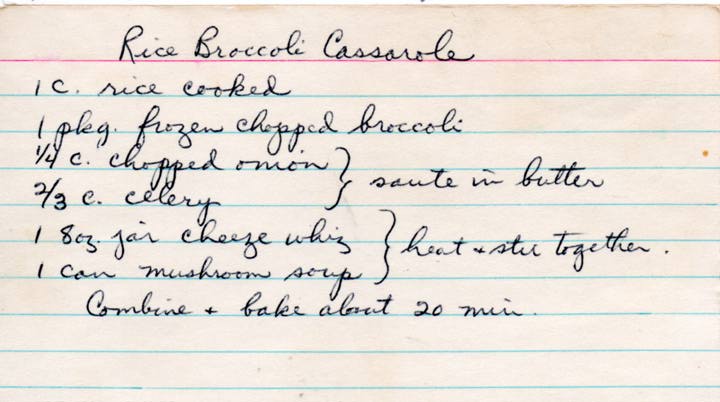 Rice Broccoli Cassarole
1 c. rice cooked
1 pkg. frozen chopped broccoli
1/4 c. chopped onion } saute in butter
2/3 c. celery
1 8oz. jar cheeze whiz } heat + stir together.
1 can mushroom soup
Combine + bake about 20 min.